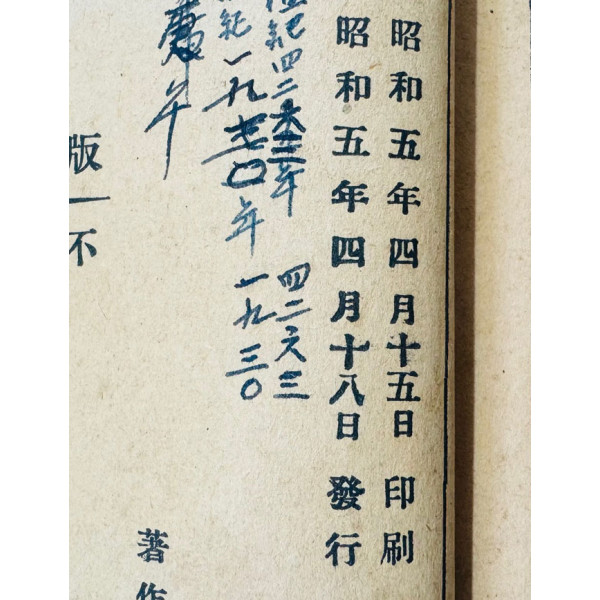 昭和五年四月十五日 印刷
昭和五年四月十八日 發行
紀四二六三年 四二六三
紀一九三〇年 一九三〇
午
版一不
著作